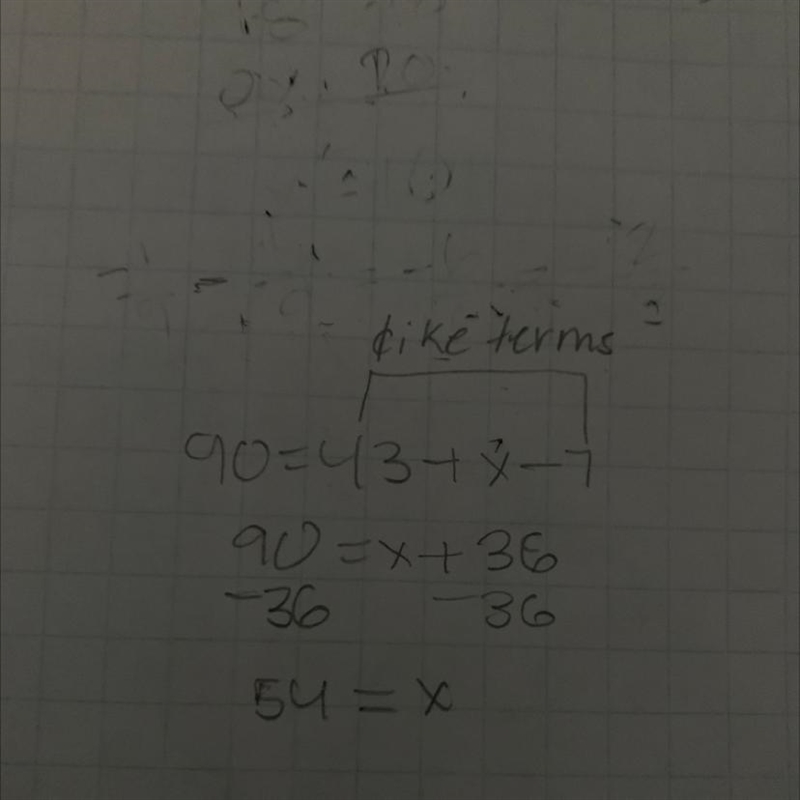 like terms
90=43+x-7
90=x+36
-36 -36
54=x